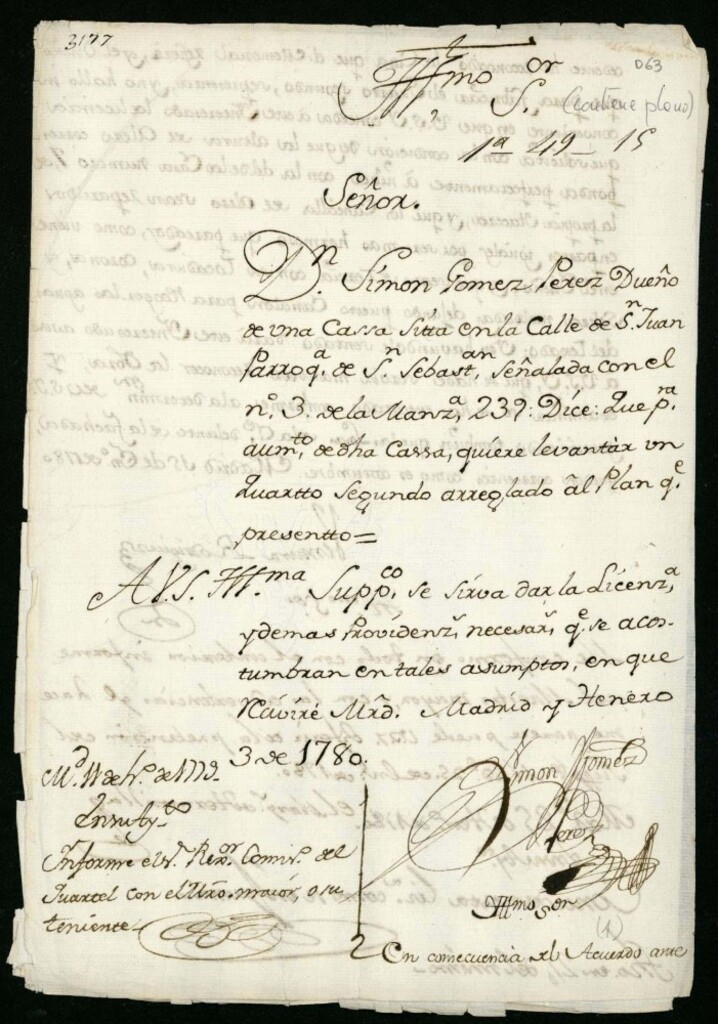 3177
063
Yllmo Sor
(contiene plano)
1a 49 - 15
Señor.
Dn. Simon Gomez Perez Dueño
de vna Cassa sitta en la Calle de Sn. Juan
Parroqa. de Sn. Sebastan. señalada con el
no. 3. de la Manza. 239: Dice: Que pa.
aumto. de dha Cassa, quiere levantar vn
Quartto segundo arreglado âl Plan qe.
presentto=
A V.S. Yllma. Suppco. se sirva dar la Licenza.
y demas Providenzs. necesars. qe. se acos-
tumbran en tales assumptos, en que
Recivirè Mrd. Madrid y Henero
3 de 1780.
Simon Gomez
Perez
Md. 11 de
en su Aytto.
Informe el Sr. Rexor. Comiso. del
Quartel con el Mro. maior, o su
teniente-
Yllmo Sor
(1)
En consecuencia del Acuerdo ante